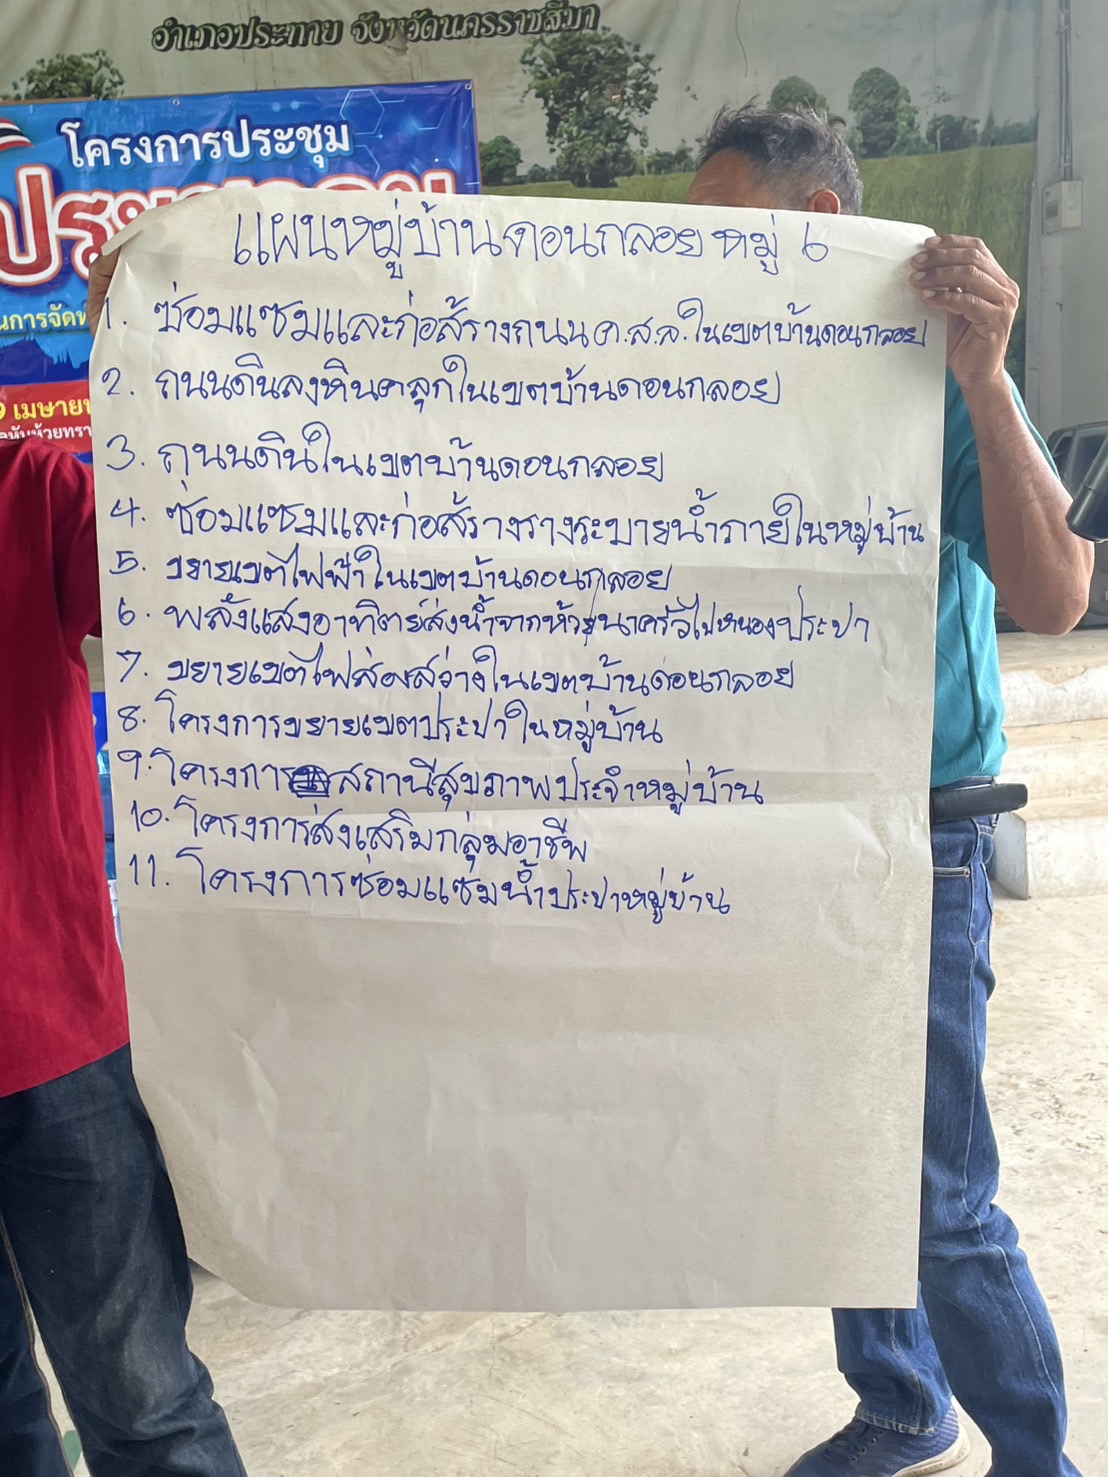 อำเภอประทาย จังหวัดนครราชสีมา
โครงการประชุม
แผนหมู่บ้านดอนกลอย หมู่ 6
1. ซ่อมแซมและก่อสร้างถนน ค.ส.ล. ในเขตบ้านดอนกลอย
2. ถนนดินลงหินคลุกในเขตบ้านดอนกลอย
3. ถนนดินในเขตบ้านดอนกลอย
4. ซ่อมแซมและก่อสร้างรางระบายน้ำภายในหมู่บ้าน
5. ขยายเขตไฟฟ้าในเขตบ้านดอนกลอย
6. พลังแสงอาทิตย์ส่งน้ำจากห้วยนาครัวไปหนองประปา
7. ขยายเขตไฟส่องสว่างในเขตบ้านดอนกลอย
8. โครงการขยายเขตประปาในหมู่บ้าน
9. โครงการสถานีสุขภาพประจำหมู่บ้าน
10. โครงการส่งเสริมกลุ่มอาชีพ
11. โครงการซ่อมแซมน้ำประปาหมู่บ้าน